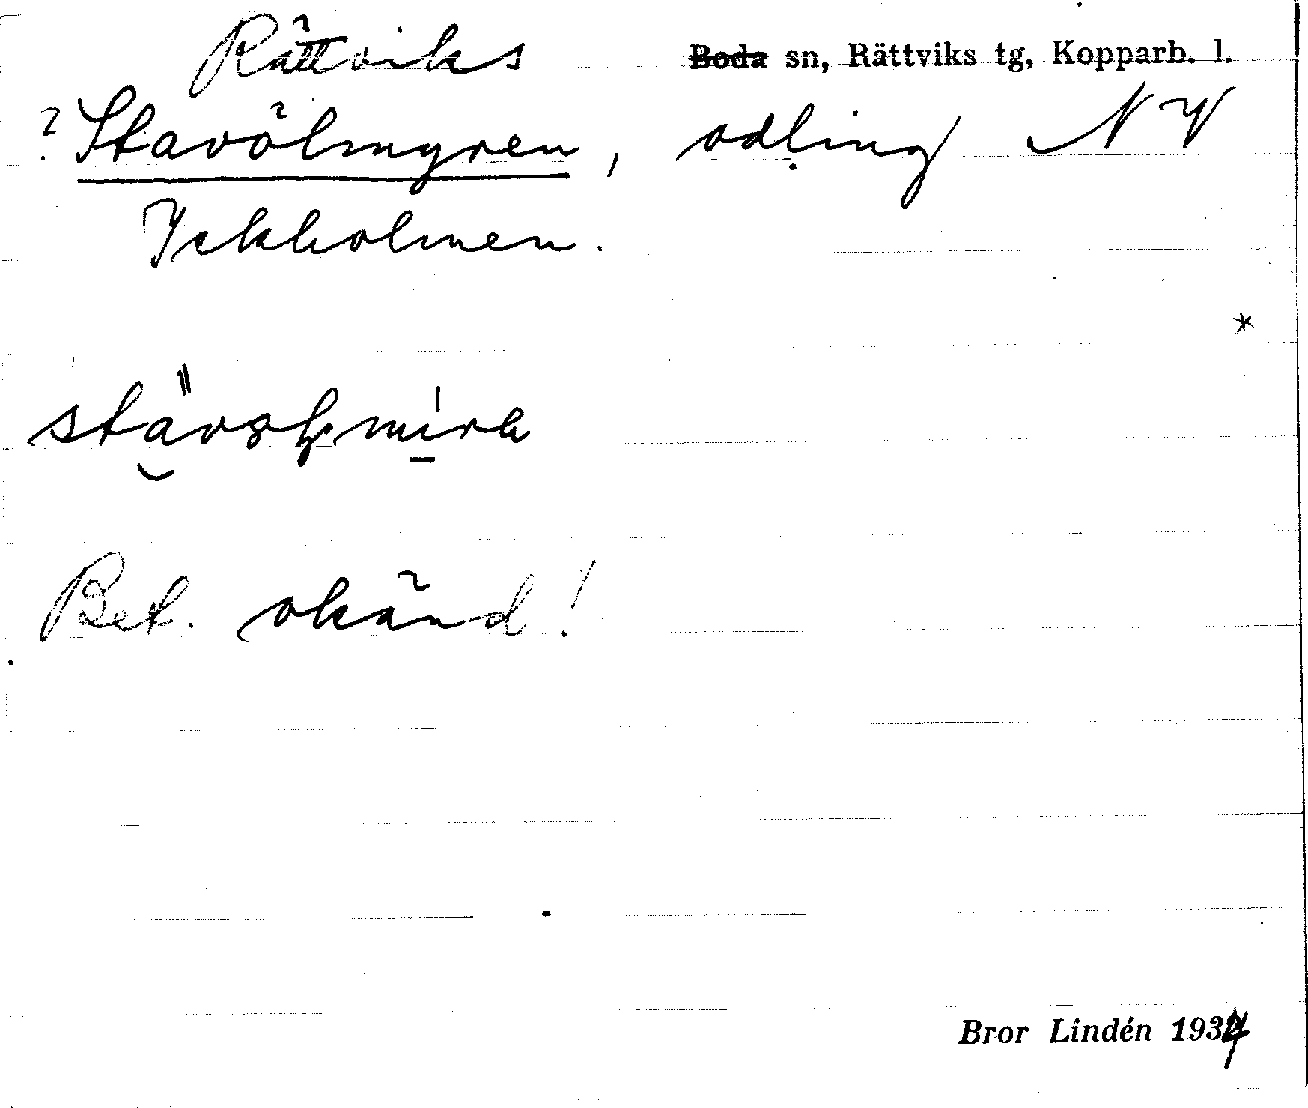 Rättviks ~~Boda~~ sn, Rättviks tg, Kopparb. l.
? Stavölmyren, odling NV
Yckholmen.
*
Bet. okänd!
Bror Lindén 1934